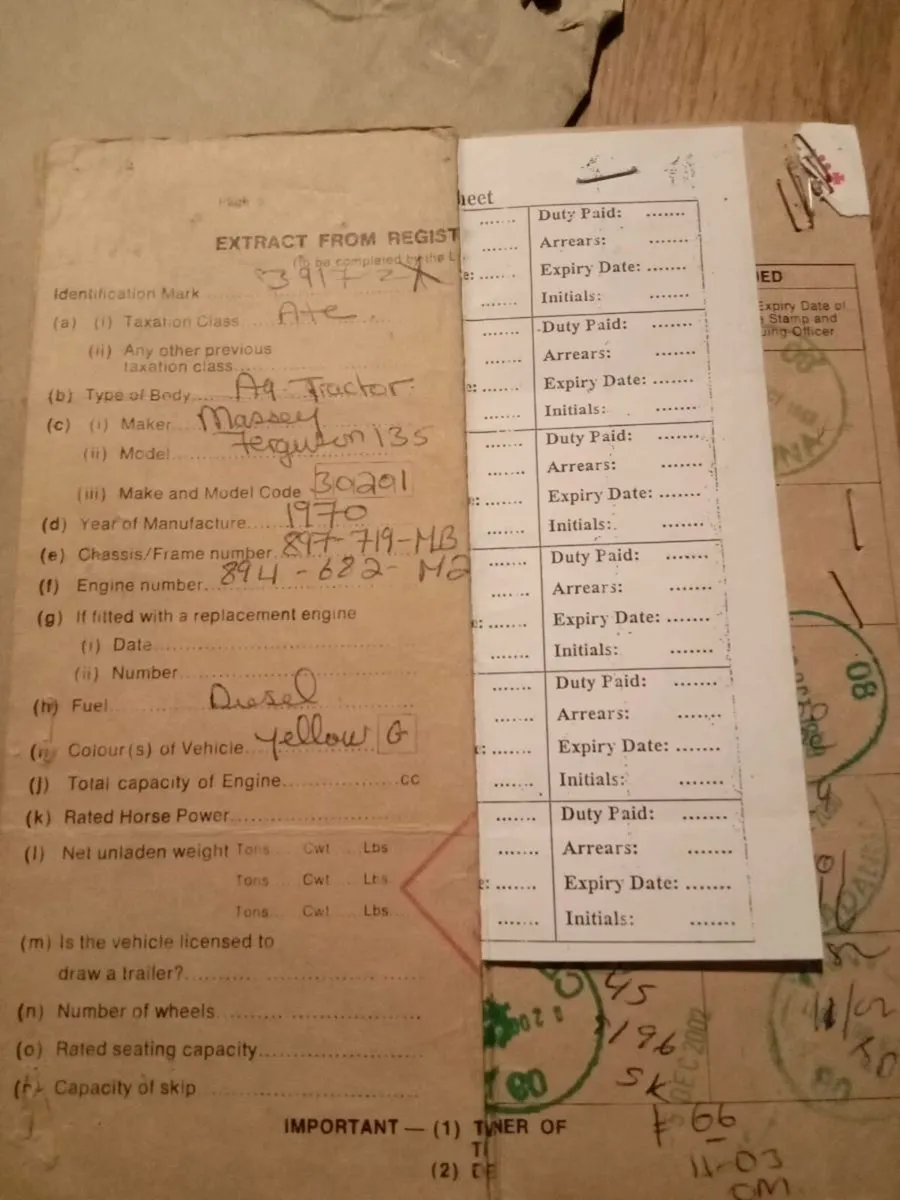 EXTRACT FROM REGIST
(To be completed by the L
Identification Mark
(a) (i) Taxation Class
(ii) Any other previous
taxation class
(b) Type of Body Ag Tractor
(c) (i) Maker Massey
(ii) Model Ferguson 135
(iii) Make and Model Code 30201
(d) Year of Manufacture 1970
(e) Chassis/Frame number 897-719-MB
(f) Engine number 894-682-M2
(g) If fitted with a replacement engine
(i) Date
(ii) Number
(h) Fuel Diesel
Colour(s) of Vehicle Yellow G
(j) Total capacity of Engine cc
(k) Rated Horse Power
(l) Net unladen weight Tons Cwt Lbs
Tons Cwt Lbs
Tons Cwt Lbs
(m) Is the vehicle licensed to
draw a trailer?
(n) Number of wheels
(o) Rated seating capacity
Capacity of skip
IMPORTANT — (1)
NER OF
(2)
heet
Duty Paid: .......
Arrears: .......
Expiry Date: .......
Initials: .......
Duty Paid: .......
Arrears: .......
Expiry Date: .......
Initials: .......
Duty Paid: .......
Arrears: .......
Expiry Date: .......
Initials: .......
Duty Paid: .......
Arrears: .......
Expiry Date: .......
Initials: .......
Duty Paid: .......
Arrears: .......
Expiry Date: .......
Initials: .......
Duty Paid: .......
Arrears: .......
Expiry Date: .......
Initials: .......
ED
Expiry Date of
Stamp and
uing Officer
08
45
196
SK
DEC 2002
80
66
11-03